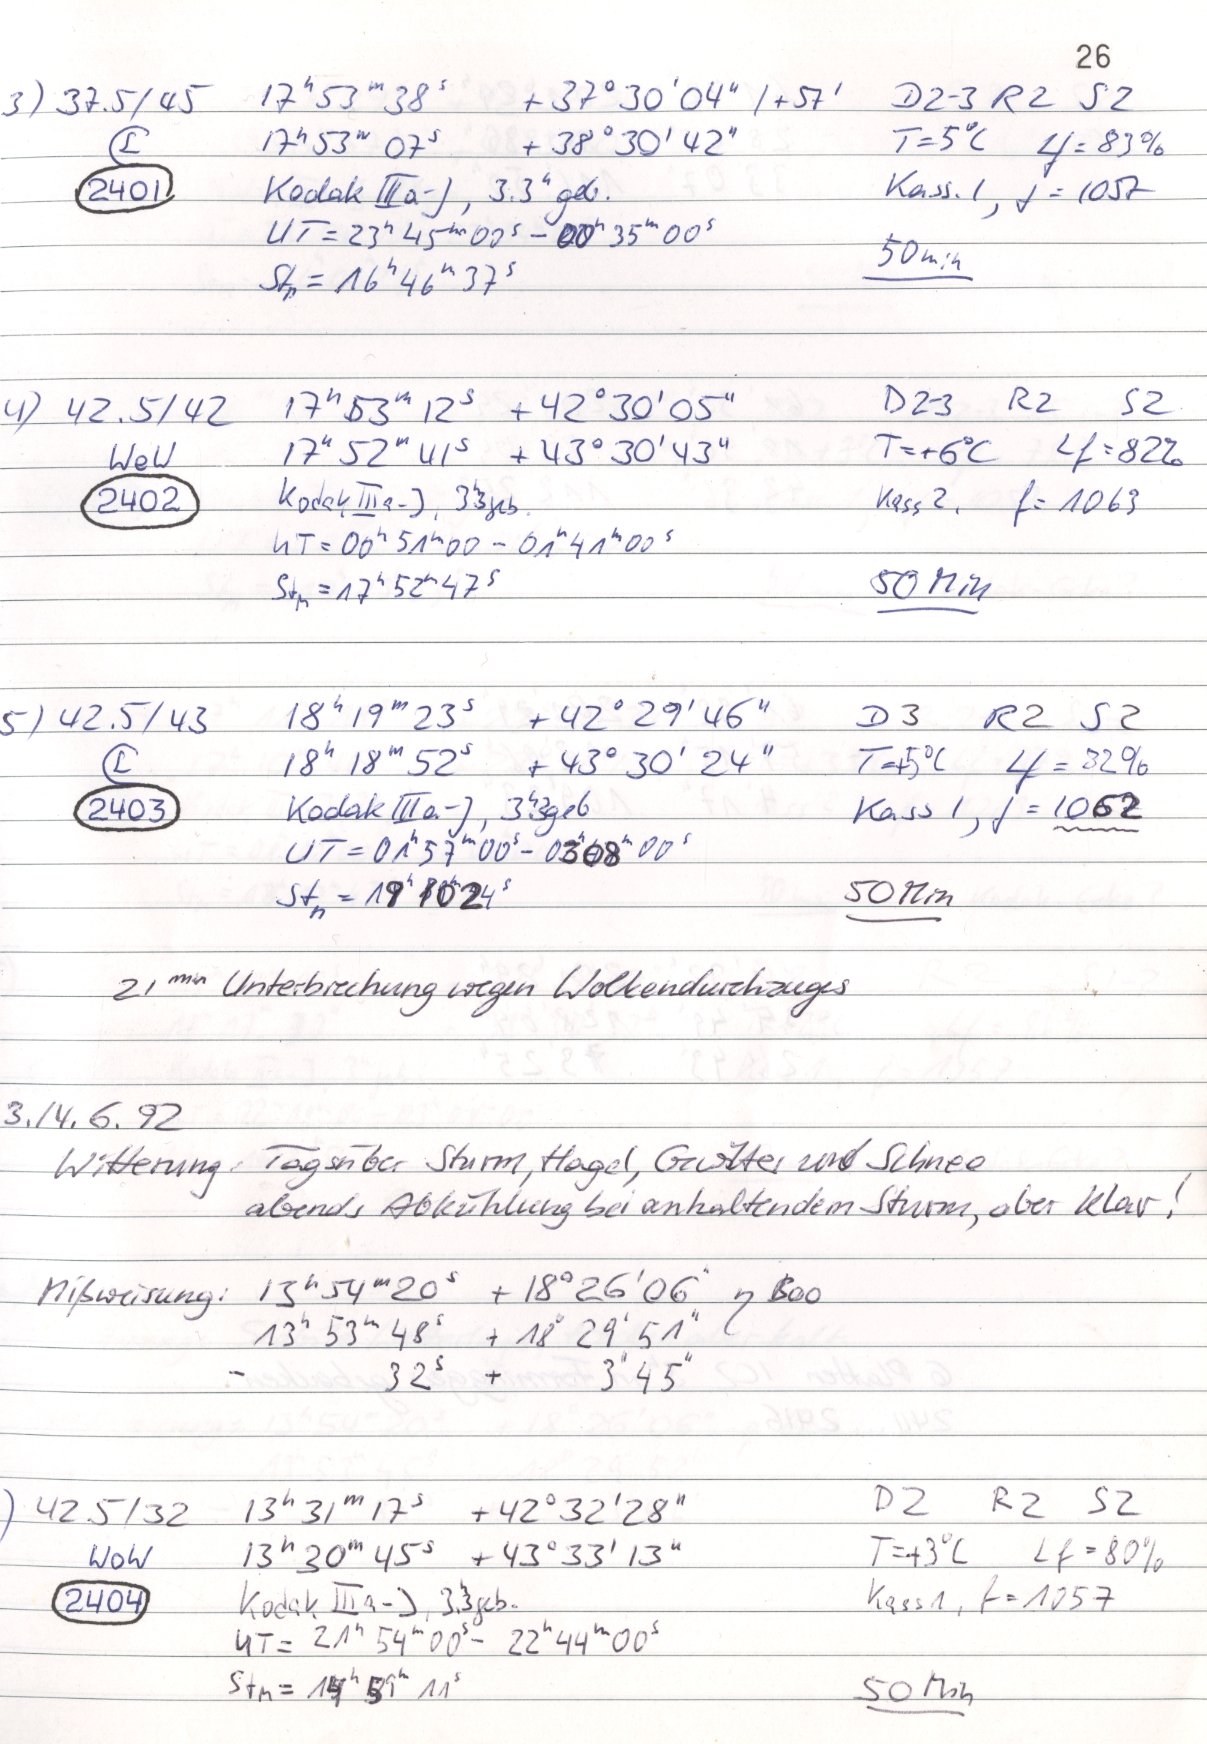 26
3) 37.5/45 17ʰ53ᵐ38ˢ +37°30'04" /+57' D2-3 R2 S2
17ʰ53ᵐ07ˢ +38°30'42" T=5°C Lf=83%
2401 Kodak IIIa-J, 3.3ʰ geb. Kass. 1, f=1057
UT=23ʰ45ᵐ00ˢ-00ʰ35ᵐ00ˢ 50min
Stₙ=16ʰ46ᵐ37ˢ
4) 42.5/42 17ʰ53ᵐ12ˢ +42°30'05" D2-3 R2 S2
WeW 17ʰ52ᵐ41ˢ +43°30'43" T=+6°C Lf=82%
2402 Kodak IIIa-J, 3ʰ3 geb. Kass 2, f=1063
UT=00ʰ51ᵐ00-01ʰ41ᵐ00ˢ
Stₙ=17ʰ52ᵐ47ˢ 50 Min
5) 42.5/43 18ʰ19ᵐ23ˢ +42°29'46" D3 R2 S2
18ʰ18ᵐ52ˢ +43°30'24" T=+5°C Lf=82%
2403 Kodak IIIa-J, 3ʰ3 geb Kass 1, f=1062
UT=01ʰ57ᵐ00ˢ- 00ˢ
Stₙ= 50 Min
21ᵐⁱⁿ Unterbrechung wegen Wolkendurchzuges
3./4.6.92
Witterung: Tagsüber Sturm, Hagel, Gewitter und Schnee
abends Abkühlung bei anhaltendem Sturm, aber klar!
Mißweisung: 13ʰ54ᵐ20ˢ +18°26'06" η Boo
13ʰ53ᵐ48ˢ +18°29'51"
- 32ˢ + 3'45"
) 42.5/32 13ʰ31ᵐ17ˢ +42°32'28" D2 R2 S2
WoW 13ʰ30ᵐ45ˢ +43°33'13" T=+3°C Lf=80%
2404 Kodak IIIa-J, 3ʰ3 geb. Kass 1, f=1057
UT=21ʰ54ᵐ00ˢ-22ʰ44ᵐ00ˢ
Stₙ= 11ˢ 50 Min